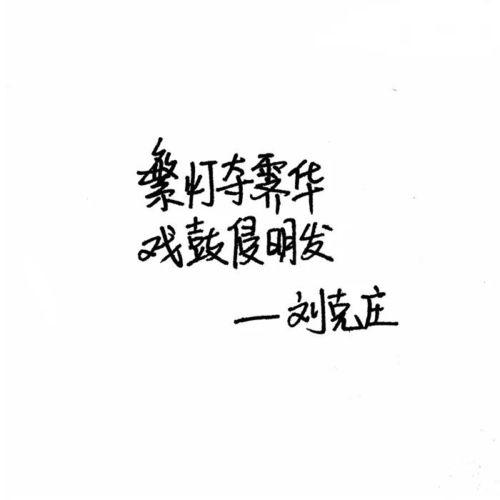 繁灯夺霁华
戏鼓侵明发
—刘克庄